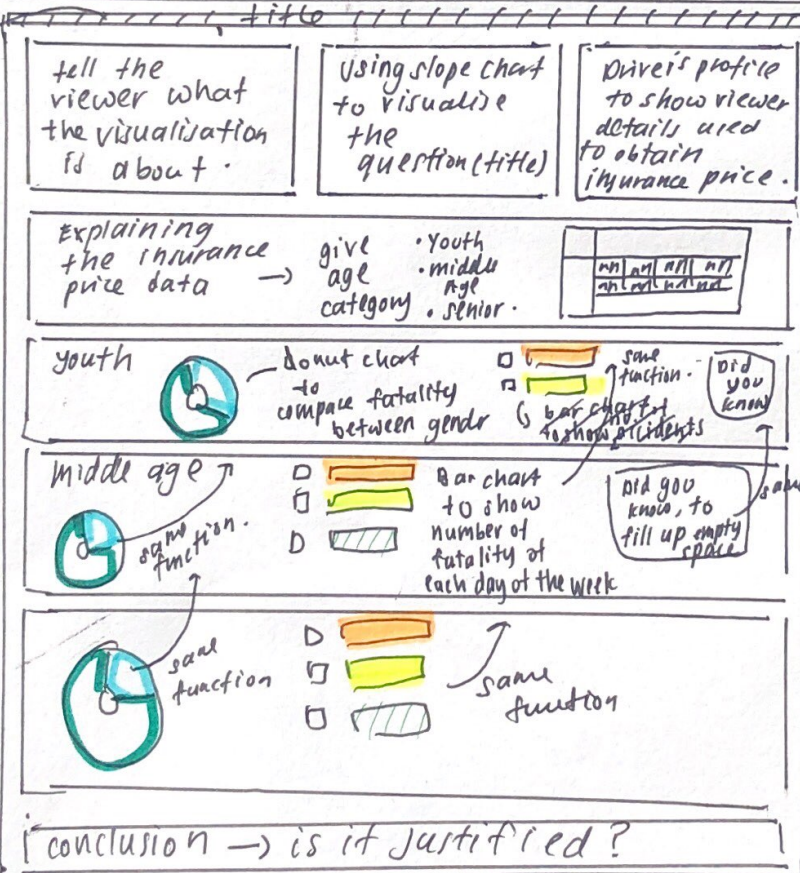 title
tell the
viewer what
the visualisation
is about.
Using slope chart
to visualise
the
question (title)
Driver's profile
to show viewer
details used
to obtain
insurance price.
Explaining
the insurance
price data →
give
age
category
• Youth
• middle
Age
• senior.
youth
donut chart
to
compare fatality
between gendr
same
function.
bar chart
to show accidents
Did
you
know
middle age
same
function.
Bar chart
to show
number of
fatality of
each day of the week
Did you
know, to
fill up empty
space
same
same
function
same
function
conclusion → is it justified?